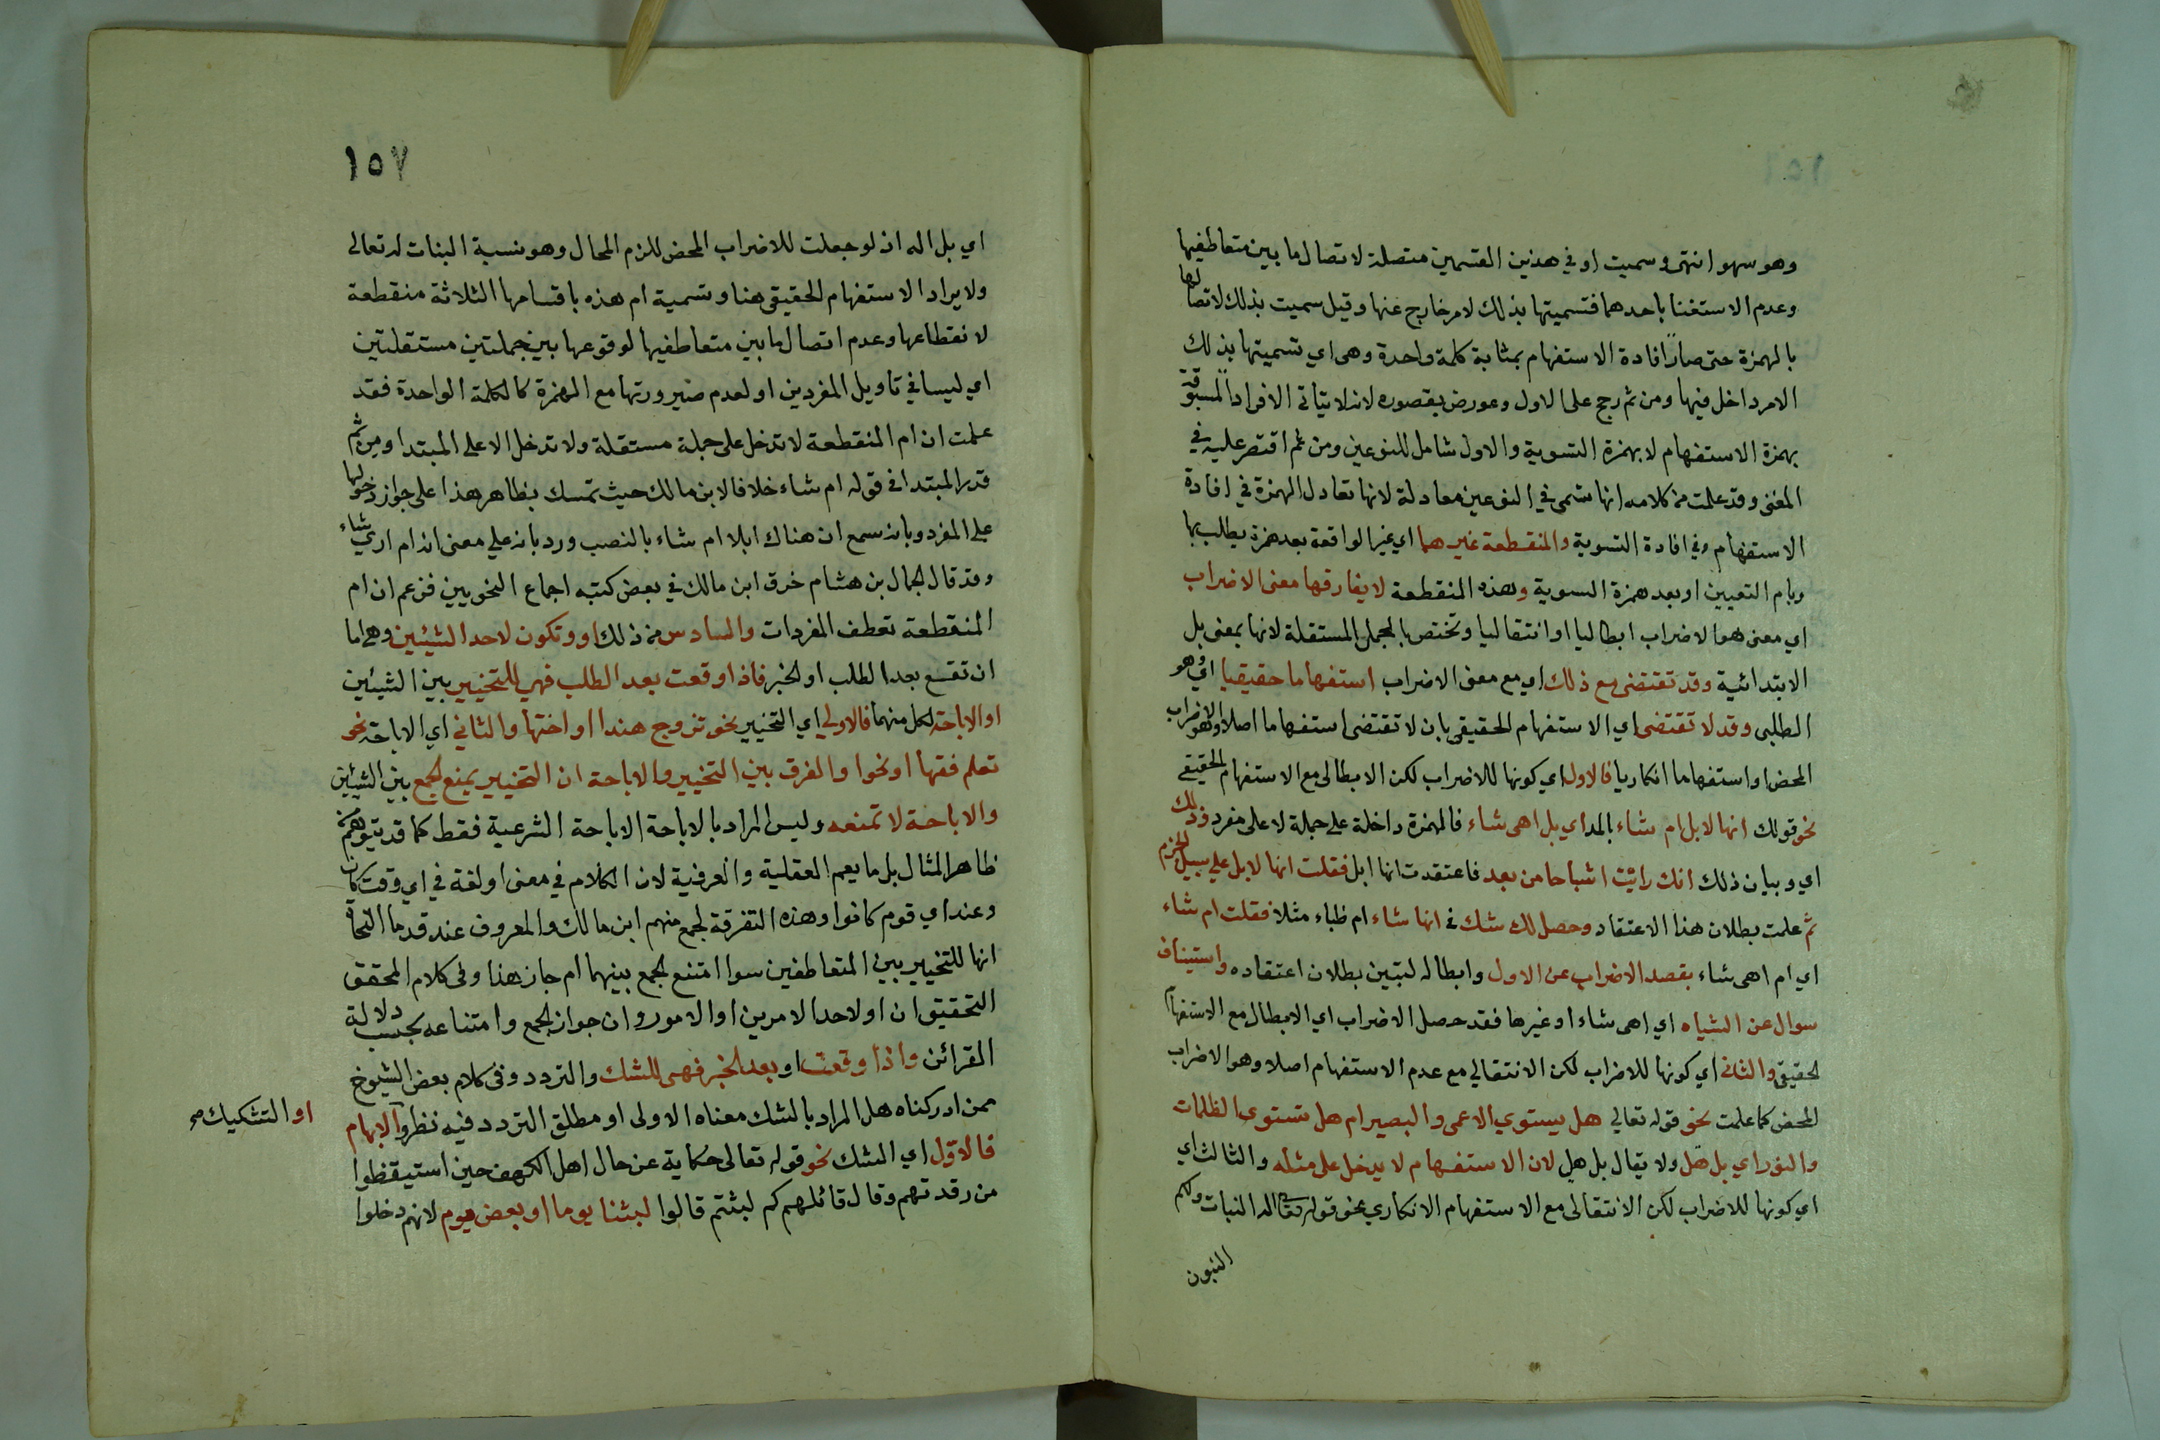 وهو سهو انتهى وسميت او في هذين القسمين متصلة لاتصال ما بين متعاطفيها
وعدم الاستغنا باحدهما فتسميتها بذلك لامر خارج عنها وقيل سميت بذلك لاتصالها
بالهمزة حتى صارا في افادة الاستفهام بمثابة كلمة واحدة وهي اي تسميتها بذلك
الامر داخل فيها ومن ثم رجح على الاول وعورض بقصوره لانه لا يتاتى الا في ام المسبوقة
بهمزة الاستفهام لا بهمزة التسوية والاول شامل للنوعين ومن ثم اقتصر عليه في
المغنى وقد علمت من كلامه انها تسمى في النوعين معادلة لانها تعادل الهمزة في افادة
الاستفهام وفي افادة التسوية والمنقطعة غيرهما اي غير الواقعة بعد همزة يطلب بها
وبام التعيين او بعد همزة التسوية وهذه المنقطعة لا يفارقها معنى الاضراب
اي معنى هو الاضراب ابطاليا او انتقاليا وتختص بالجمل المستقلة لانها بمعنى بل
الابتدائية وقد تقتضي مع ذلك اي مع معنى الاضراب استفهاما حقيقيا اي وهو
الطلبي وقد لا تقتضي اي الاستفهام الحقيقي بان لا تقتضي استفهاما اصلا وهو الاضراب
المحض او استفهاما انكاريا فالاول اي كونها للاضراب لكن الابطالي مع الاستفهام الحقيقي
نحو قولك انها لابل ام شاء بالمد اي بل اهي شاء فالهمزة داخلة على جملة لا على مفرد وذلك
اي وبيان ذلك انك رايت اشباحا من بعد فاعتقدت انها ابل فقلت انها لابل على سبيل الجزم
ثم علمت بطلان هذا الاعتقاد وحصل لك شك في انها شاء ام ظباء مثلا فقلت ام شاء
اي ام اهي شاء بقصد الاضراب عن الاول وابطاله لتبين بطلان اعتقاده واستيناف
سوال عن الشياه اي اهي شاء او غيرها فقد حصل الاضراب اي الابطال مع الاستفهام
الحقيقي والثاني اي كونها للاضراب لكن الانتقالي مع عدم الاستفهام اصلا وهو الاضراب
المحض كما علمت نحو قوله تعالي هل يستوي الاعمى والبصير ام هل تستوي الظلمات
والنور اي بل هل ولا يقال بل هل لان الاستفهام لا يدخل على مثله والثالث اي
اي كونها للاضراب لكن الانتقالى مع الاستفهام الانكاري نحو قوله تعالى ام له البنات ولكم
البنون
١٥٧
اي بل اله اذ لو جعلت للاضراب المحض للزم المحال وهو نسبة البنات له تعالى
ولا يراد الاستفهام الحقيقي هنا وتسمية ام هذه باقسامها الثلاثة منقطعة
لانقطاعها وعدم اتصال ما بين متعاطفيها لوقوعها بين جملتين مستقلتين
اي ليسا في تاويل المفردين او لعدم صيرورتها مع الهمزة كالكلمة الواحدة فقد
علمت ان ام المنقطعة لا تدخل على جملة مستقلة ولا تدخل الا على المبتدا ومن ثم
قدر المبتدا في قوله ام شاء خلافا لابن مالك حيث تمسك بظاهر هذا على جواز دخولها
على المفرد وبانه سمع ان هناك ابلا ام شاء بالنصب ورد بانه على معنى انه ام اري شاء
وقد قال الجمال بن هشام خرق ابن مالك في بعض كتبه اجماع النحويين فزعم ان ام
المنقطعة تعطف المفردات والسادس من ذلك او وتكون لاحد الشيئين وهي اما
ان تقع بعد الطلب او الخبر فاذا وقعت بعد الطلب فهي للتخيير بين الشيئين
او الاباحة لكل منهما فالاولي اي التخيير نحو تزوج هندا او اختها والثاني اي الاباحة نحو
تعلم فقها او نحوا والفرق بين التخيير والاباحة ان التخيير يمنع الجمع بين الشيئين
والاباحة لا تمنعه وليس المراد بالاباحة الاباحة الشرعية فقط كما قد يتوهم من
ظاهر المثال بل ما يعم العقلية والعرفية لان الكلام في معنى او لغة في اي وقت كان
وعند اي قوم كانوا وهذه التفرقة لجمع منهم ابن مالك والمعروف عند قدما النحاة
انها للتخيير بين المتعاطفين سوا امتنع الجمع بينهما ام جاز هذا وفي كلام المحقق
التحقيق ان او لاحد الامرين او الامور وان جواز الجمع وامتناعه بحسب دلالة
القرائن واذا وقعت او بعد الخبر فهي للشك والتردد وفي كلام بعض الشيوخ
ممن ادركناه هل المراد بالشك معناه الاولى او مطلق التردد فيه نظر او الابهام
او التشكيك صح
فالاول اي الشك نحو قوله تعالى حكاية عن حال اهل الكهف حين استيقظوا
من رقدتهم وقال قائلهم كم لبثتم قالوا لبثنا يوما او بعض يوم لانهم دخلوا